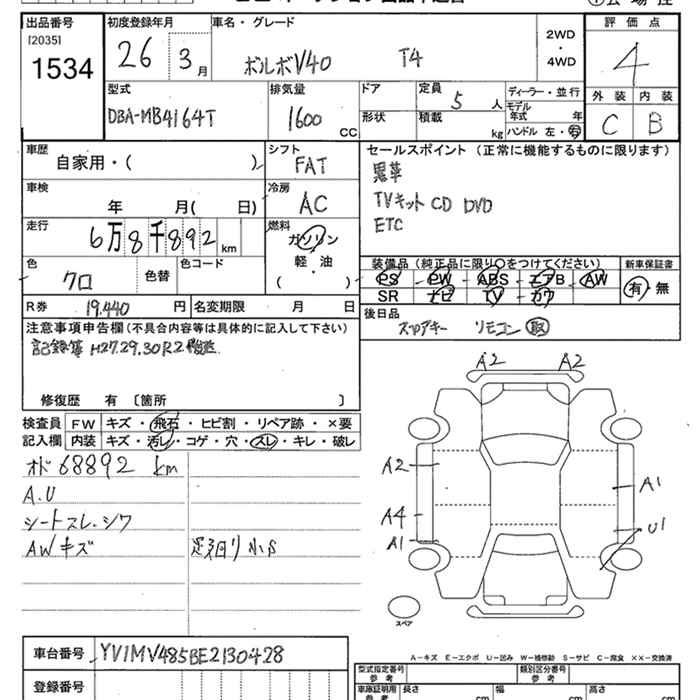 出品番号 初度登録年月 車名・グレード 評価点
[2035] 1534 26 3月 ボルボV40 T4 2WD・4WD 4
型式 排気量 ドア 定員 ディーラー・並行 外装 内装
DBA-MB4164T 1600 CC 5人 モデル年式 年 C B
形状 積載 kg ハンドル 左・右
車歴 シフト セールスポイント (正常に機能するものに限ります)
自家用・( ) FAT 黒革
車検 冷房 TVキット CD DVD
年 月( 日) AC ETC
走行 燃料
6万8千892km ガソリン
軽・油
( )
装備品(純正品に限り○をつけてください) 新車保証書
PS PW ABS エアB AW 有・無
SR ナビ TV カワ
色 色替 色コード
クロ
R券 19,440円 名変期限 月 日 後日品
スペアキー リモコン 取
注意事項申告欄(不具合内容等は具体的に記入して下さい)
記録簿 H27.29.30R2
修復歴 有 〔箇所 〕
検査員 FW キズ・飛石・ヒビ割・リペア跡・×要
記入欄 内装 キズ・汚レ・コゲ・穴・スレ・キレ・破レ
オド 68892 km
A.U
シートスレ、シワ
AWキズ 足廻り小S
A2 A2
A2 A1
A4 U1
A1
スペア
A-キズ E-エクボ U-凹み W-補修跡 S-サビ C-腐食 ××-交換済
車台番号 YV1MV485BE2130428
登録番号
型式指定番号 参考 類別区分番号 参考
車庫証明用 参考 長さ cm 幅 cm 高さ cm